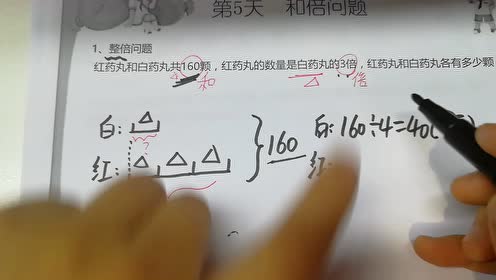 第5天 和倍问题
1、整倍问题
红药丸和白药丸共160颗，红药丸的数量是白药丸的3倍，红药丸和白药丸各有多少颗
和
倍
白：
?
红：
160
白：160÷4=40(
红：